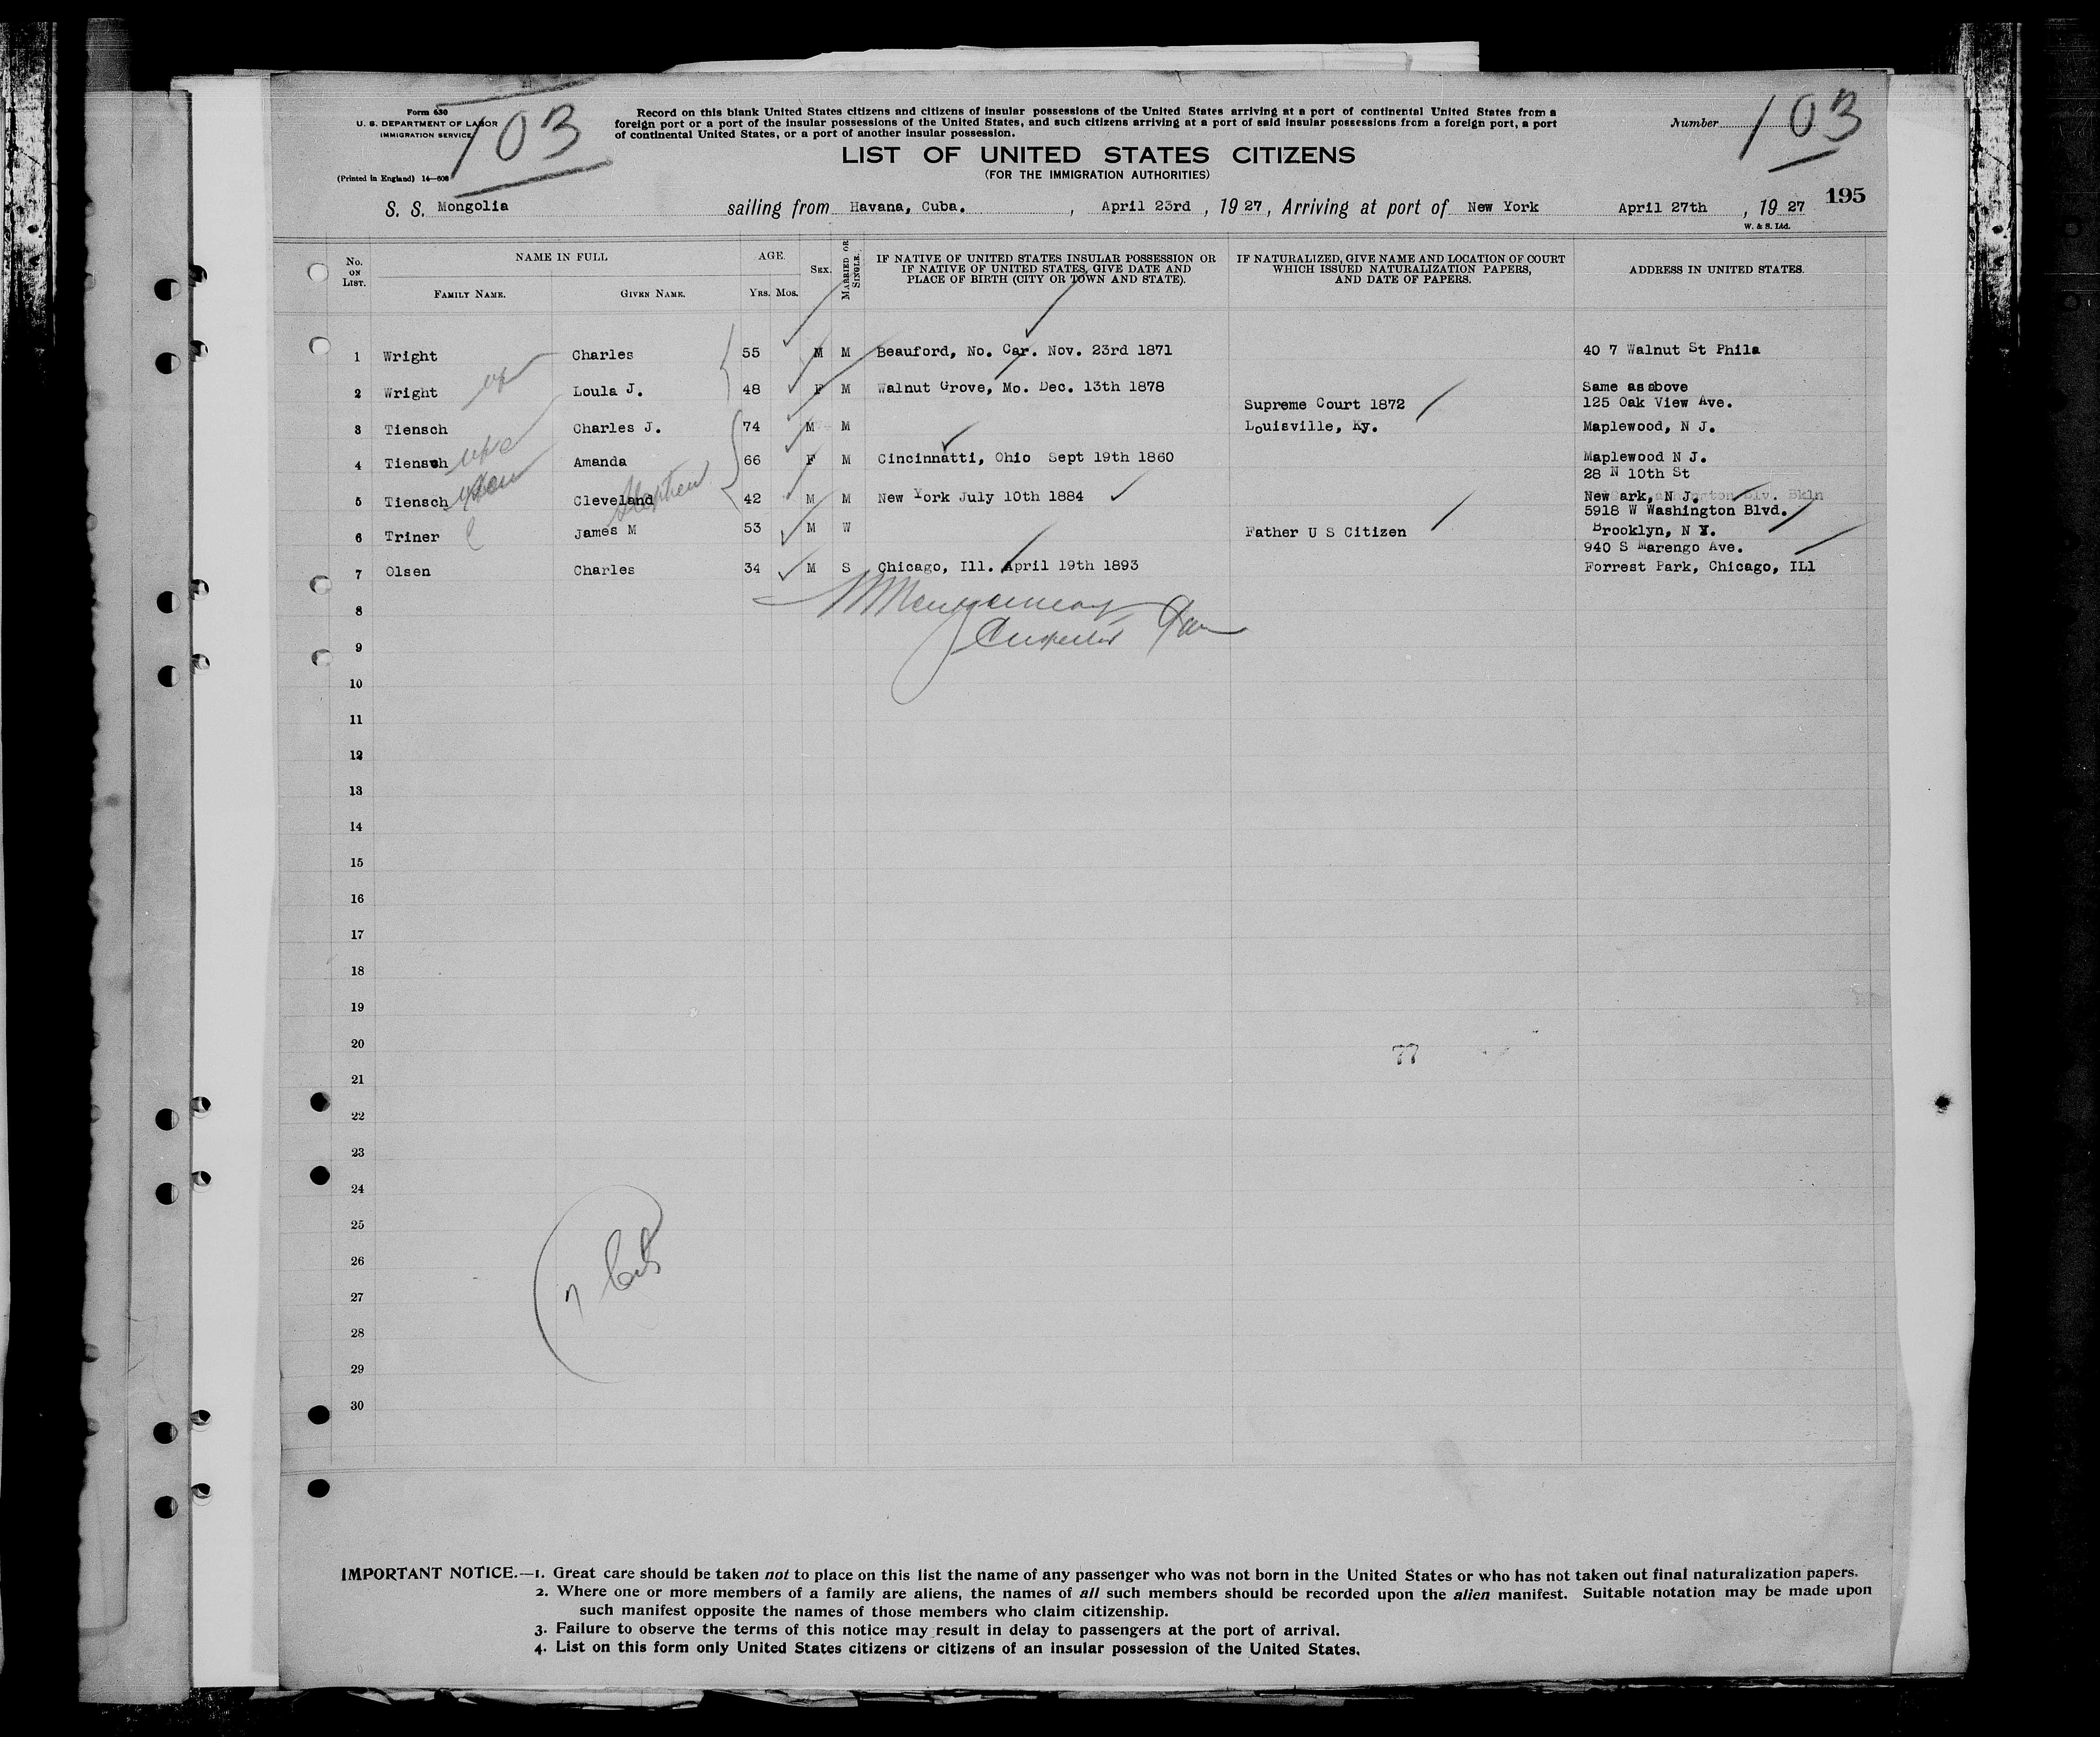 Form 630
U. S. DEPARTMENT OF LABOR
IMMIGRATION SERVICE
(Printed in England) 14—608
103
Record on this blank United States citizens and citizens of insular possessions of the United States arriving at a port of continental United States from a
foreign port or a port of the insular possessions of the United States, and such citizens arriving at a port of said insular possessions from a foreign port, a port
of continental United States, or a port of another insular possession.
Number 103
LIST OF UNITED STATES CITIZENS
(FOR THE IMMIGRATION AUTHORITIES)
195
S. S. Mongolia sailing from Havana, Cuba. , April 23rd , 19 27, Arriving at port of New York April 27th , 19 27
W. & S. Ltd.
No. ON LIST. NAME IN FULL AGE. SEX. MARRIED OR SINGLE. IF NATIVE OF UNITED STATES INSULAR POSSESSION OR IF NATIVE OF UNITED STATES, GIVE DATE AND PLACE OF BIRTH (CITY OR TOWN AND STATE). IF NATURALIZED, GIVE NAME AND LOCATION OF COURT WHICH ISSUED NATURALIZATION PAPERS, AND DATE OF PAPERS. ADDRESS IN UNITED STATES.
FAMILY NAME. GIVEN NAME. Yrs. Mos.
1 Wright Charles 55 M M Beauford, No. Car. Nov. 23rd 1871 40 7 Walnut St Phila
2 Wright Loula J. 48 F M Walnut Grove, Mo. Dec. 13th 1878 Same as above
Supreme Court 1872 125 Oak View Ave.
3 Tiensch Charles J. 74 M M Louisville, Ky. Maplewood, N J.
4 Tiensch Amanda 66 F M Cincinnatti, Ohio Sept 19th 1860 Maplewood N J.
28 N 10th St
5 Tiensch Cleveland Stephen 42 M M New York July 10th 1884 Newark, N J.
5918 W Washington Blvd.
6 Triner James M 53 M W Father U S Citizen Brooklyn, N Y.
940 S Marengo Ave.
7 Olsen Charles 34 M S Chicago, Ill. April 19th 1893 Forrest Park, Chicago, ILl
8
9
10
11
12
13
14
15
16
17
18
19
20
77
21
22
23
24
25
26
27
28
29
30
IMPORTANT NOTICE.—1. Great care should be taken not to place on this list the name of any passenger who was not born in the United States or who has not taken out final naturalization papers.
2. Where one or more members of a family are aliens, the names of all such members should be recorded upon the alien manifest. Suitable notation may be made upon
such manifest opposite the names of those members who claim citizenship.
3. Failure to observe the terms of this notice may result in delay to passengers at the port of arrival.
4. List on this form only United States citizens or citizens of an insular possession of the United States.